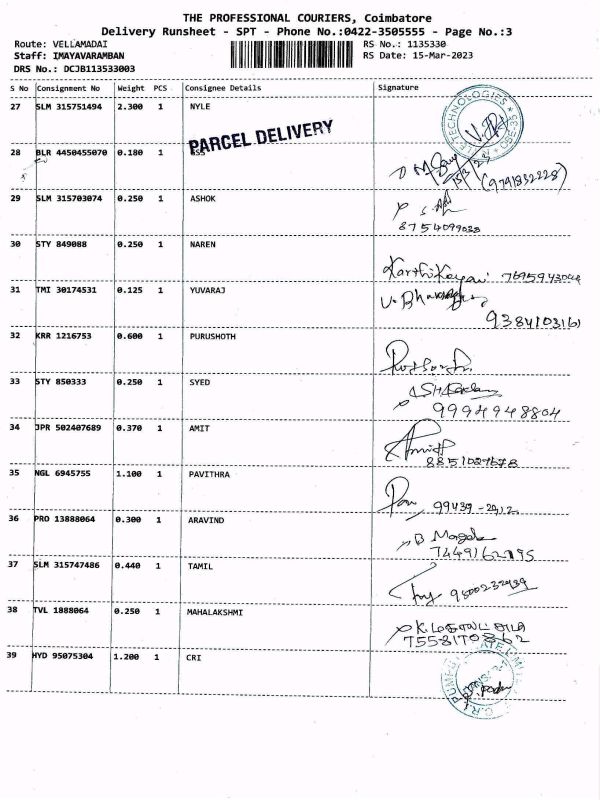 THE PROFESSIONAL COURIERS, Coimbatore
Delivery Runsheet - SPT - Phone No.:0422-3505555 - Page No.:3
Route: VELLAMADAI RS No.: 1135330
Staff: IMAYAVARAMBAN RS Date: 15-Mar-2023
DRS No.: DCJB113533003
S No Consignment No Weight PCS Consignee Details Signature
27 SLM 315751494 2.300 1 NYLE
TECHNOLOGIES
PARCEL DELIVERY
28 BLR 4450455070 0.180 1
(9791832228)
29 SLM 315703074 0.250 1 ASHOK
8754099038
30 STY 849088 0.250 1 NAREN
Karthikeyan
31 TMI 30174531 0.125 1 YUVARAJ
32 KRR 1216753 0.600 1 PURUSHOTH
33 STY 850333 0.250 1 SYED
9994948804
34 JPR 502407689 0.370 1 AMIT
Amit
35 NGL 6945755 1.100 1 PAVITHRA
36 PRO 13888064 0.300 1 ARAVIND
37 SLM 315747486 0.440 1 TAMIL
38 TVL 1888064 0.250 1 MAHALAKSHMI
7558170862
39 HYD 95075304 1.200 1 CRI